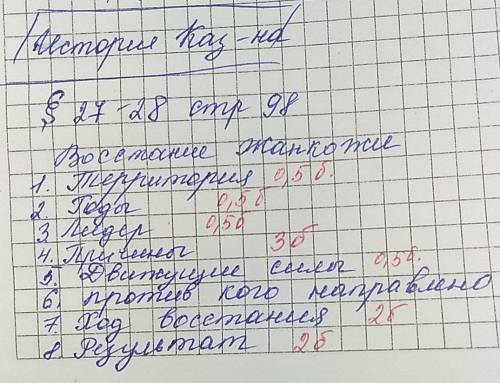 История Каз-на
§ 27-28 стр 98
Восстание Жанкожи
1. Территория 0,5 б.
2. Годы 0,5 б
3 Лидер 0,5б
4. Причины 3б
5. Движущие силы 0,5б.
6. против кого направлено
7. Ход восстания 2б
8 Результат 2б